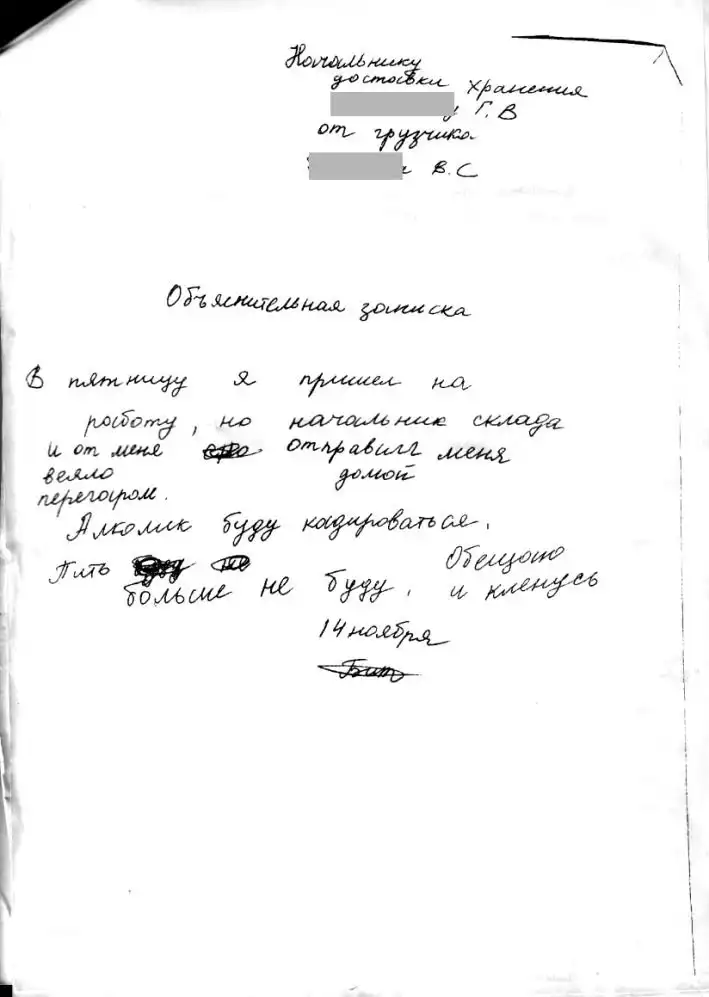 Начальнику
достовки хранения
Г. В
от грузчика
В. С
Объяснительная записка
В пятницу я пришел на
роботу, но начальник склада
и от меня отправил меня
веяло домой
перегаром.
Алколик буду кадироваться.
Пить Обещаю
больше не буду. и кленусь
14 ноября